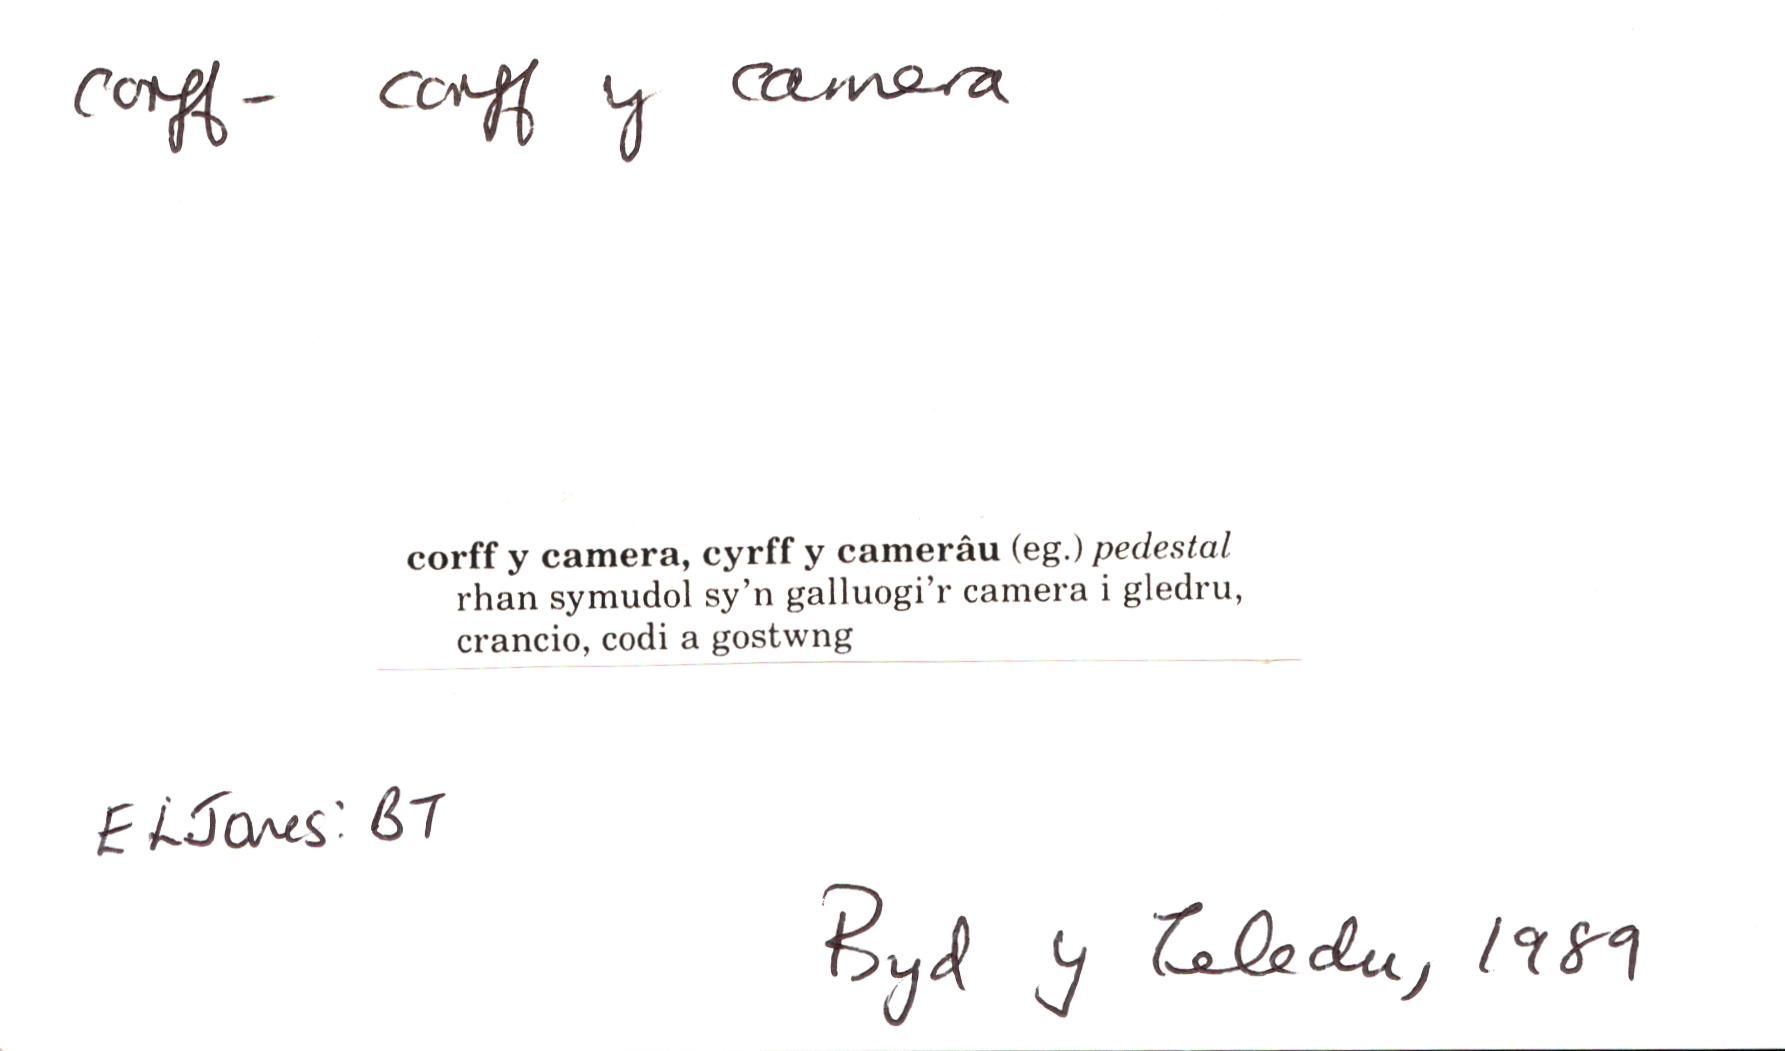 corff - corff y camera
corff y camera, cyrff y camerâu (eg.) pedestal
rhan symudol sy'n galluogi'r camera i gledru,
crancio, codi a gostwng
E L Jones: BT
Byd y Teledu, 1989